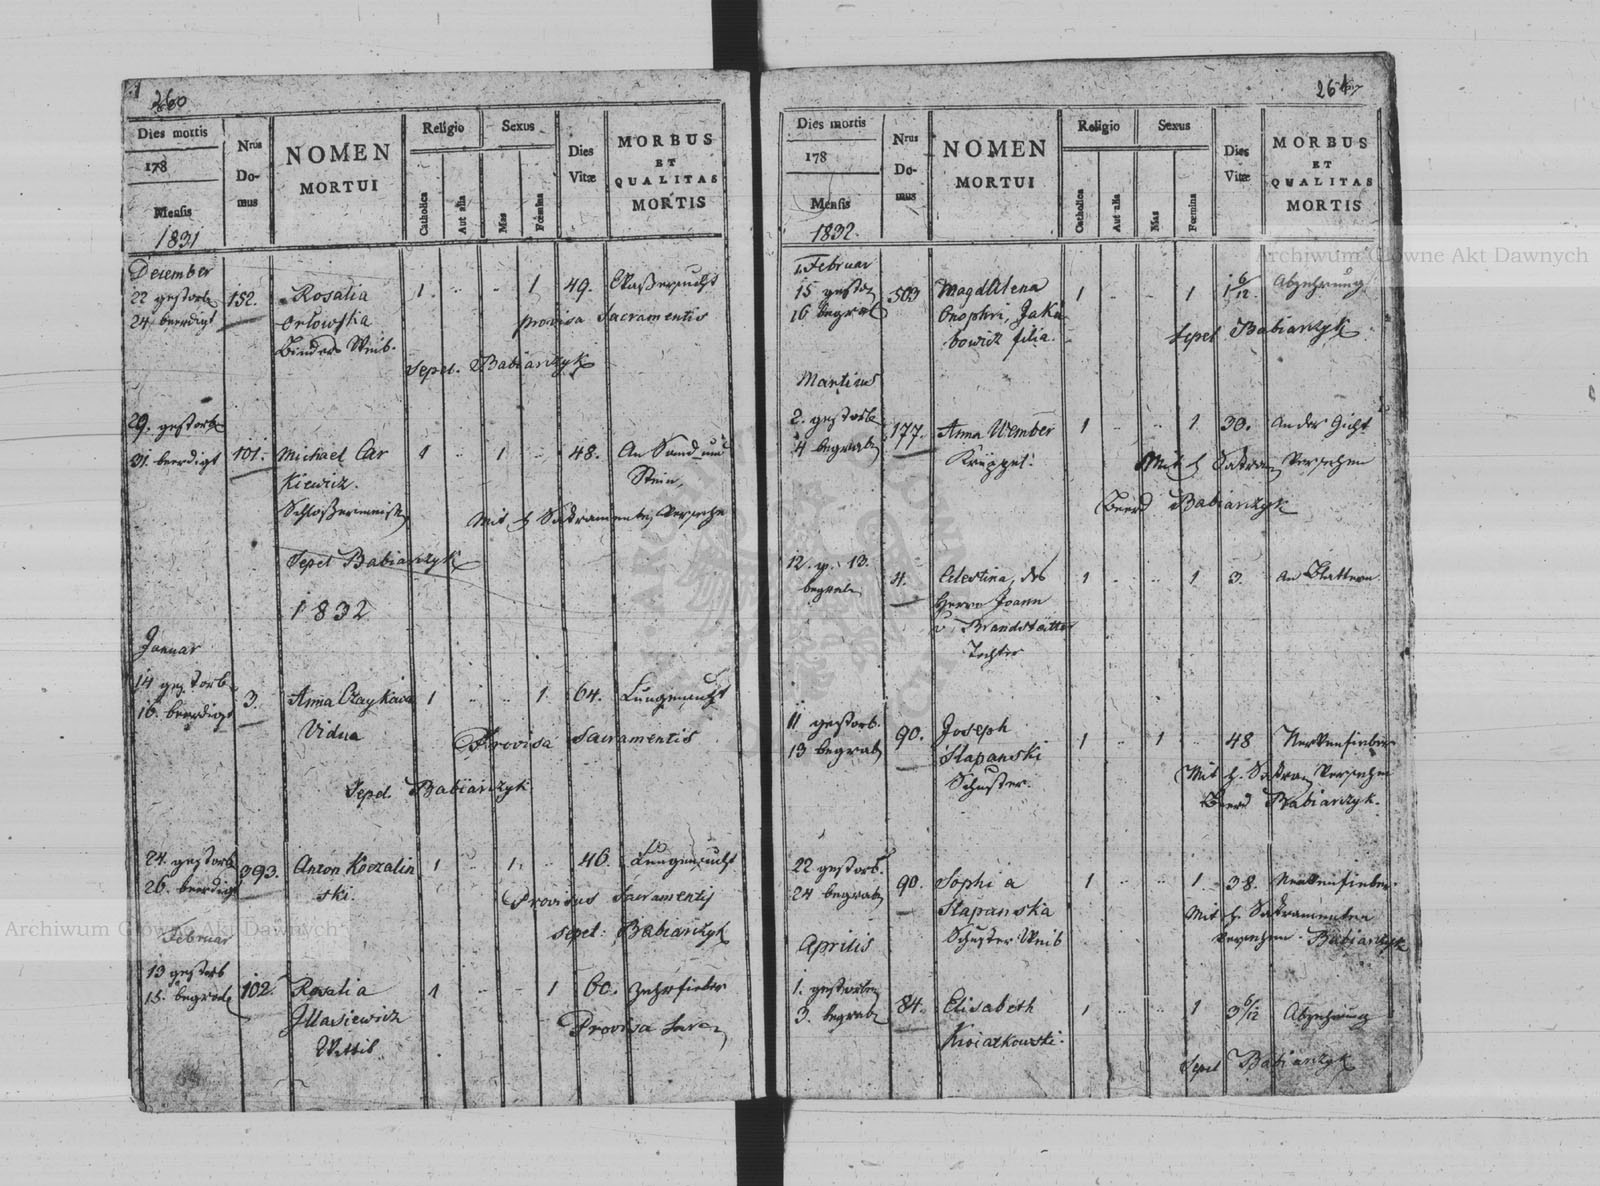 260
Dies mortis
178
Mensis
1831
Nrus
Do-
mus
NOMEN
MORTUI
Religio
Catholica
Aut alia
Sexus
Mas
Fœmina
Dies
Vitæ
MORBUS
ET
QUALITAS
MORTIS
December
22 gestorb
24 beerdigt
152.
Rosalia
Orlowska
Binders Weib.
1 .. .. 1 49. Waßersucht
provisa Sacramentis
Sepel. Babianczyk
29. gestorb
31. beerdigt
101.
Michael Car
kiewicz.
Schloßermeist
1 .. 1 .. 48. An Sand und
Stein,
Mit h Sakramenten Versehn
Sepel Babianczyk
1832
Januar
14 gestorb
16. beerdigt
3.
Anna Czaykowa
Vidua
1 .. .. 1. 64. Lungensucht
Provisa Sacramentis
Sepel. Babianczyk
24. gestorb
26. beerdigt
393.
Anton Kozalin
ski.
1 .. 1. .. 46. Lungensucht
Provisus Sacramentis
sepel: Babianczyk
Februar
13 gestorb
15. begrab
102.
Rosalia
Wittib
1 .. .. 1 60. Zehrfieber
Provisa Sacra
Dies mortis
178
Mensis
1832.
Nrus
Do-
mus
NOMEN
MORTUI
Religio
Catholica
Aut alia
Sexus
Mas
Fœmina
Dies
Vitæ
MORBUS
ET
QUALITAS
MORTIS
Februar
15 gestor
16 begrab
503
Magdalena
Onophri, Jaku
bowicz filia.
1 .. .. 1 1 6/12 Abzehrung
Sepel Babianczyk
Martius
2. gestorb
4 begrab
177.
Anna Wember
Krüppel.
1 .. .. 1 30. An der Gicht
Mit h Sakram Versehen
Beerd Babianczyk
12. g. 13.
begrab
4.
Celestina, des
Herrn Joann
v Brandstätter
Tochter
1 .. .. 1 3. An Blattern
11 gestorb.
13 begrab
90.
Joseph
Stapanski
Schuster.
1 .. 1 .. 48 Nervenfieber
Mit h. Sakram Versehen
Beerd Babianczyk.
22 gestorb.
24 begrab
90.
Sophia
Stapanska
Schuster Weib
1 .. .. 1 38. Nervenfieber
Mit h. Sakramenten
versehen. Babianczyk
Aprilis
1. gestorben
3. begrab
84.
Elisabeth
Kwiatkowski.
1 .. .. 1 3 6/12 Abzehrung
Sepel Babianczyk
Archiwum Główne Akt Dawnych
Archiwum Główne Akt Dawnych